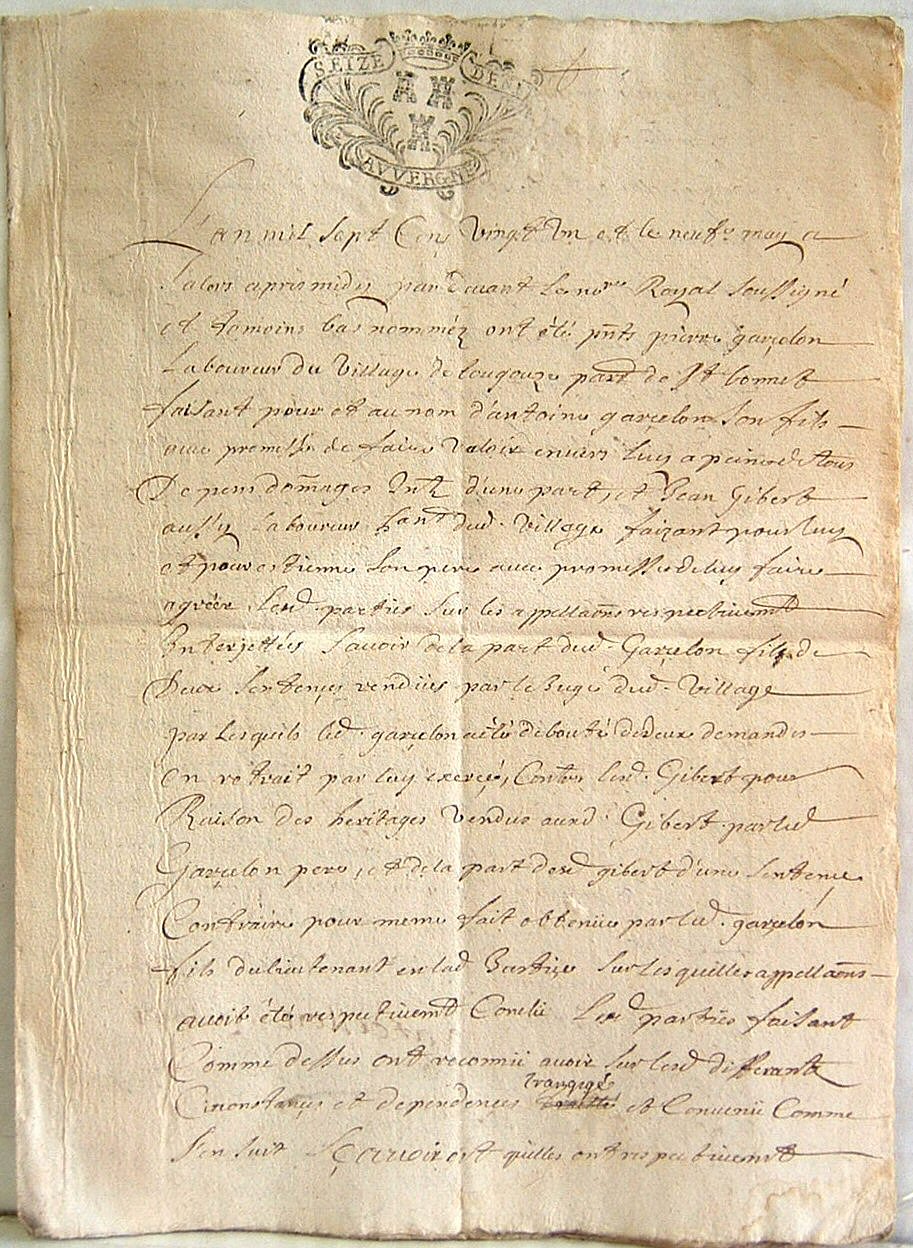 SEIZE DEN
AVVERGNE
L'an mil sept Cens Vingt Un et le neufe may a
pardevant le nore Royal soussigné
et temoins bas nomméz ont été pnts pierre garcelon
Laboureur du Village de Lougouze part de St bonnet
faisant pour et au nom d'antoine garcelon son fils
avec promesse de faire valoir envers luy a peine de tous
Depens domages Intz d'une part, et Jean Gibert
aussy Laboureur hant dud. Village faizant pour luy
et pour estienne son pere avec promesse de luy faire
agréer Lesd. parties sur les appellaõns respectivemt
Interjettées Savoir de la part dud. Garcelon fils de
Deux Sentences rendües par le Juge dud. Village
par Lesquels led. garcelon a été débouté de Deux demandes
en retrait par luy exercés, Contre lesd. Gibert pour
Raison des heritages Vendus aud. Gibert par led
Garcelon pere, et de la part desd gibert d'une Sentence
Contraire pour meme fait obtenüe par led. garcelon
fils du lieutenant en lad Justice sur lesquelles appellaõns
avoit été respectivemt Conclu Lesd parties faisant
Comme dessus ont reconnü avoir sur lesd differantz
Circonstances et dependences transigé et Convenü Comme
s'en suit Sçavoir est quelles ont respectivemt